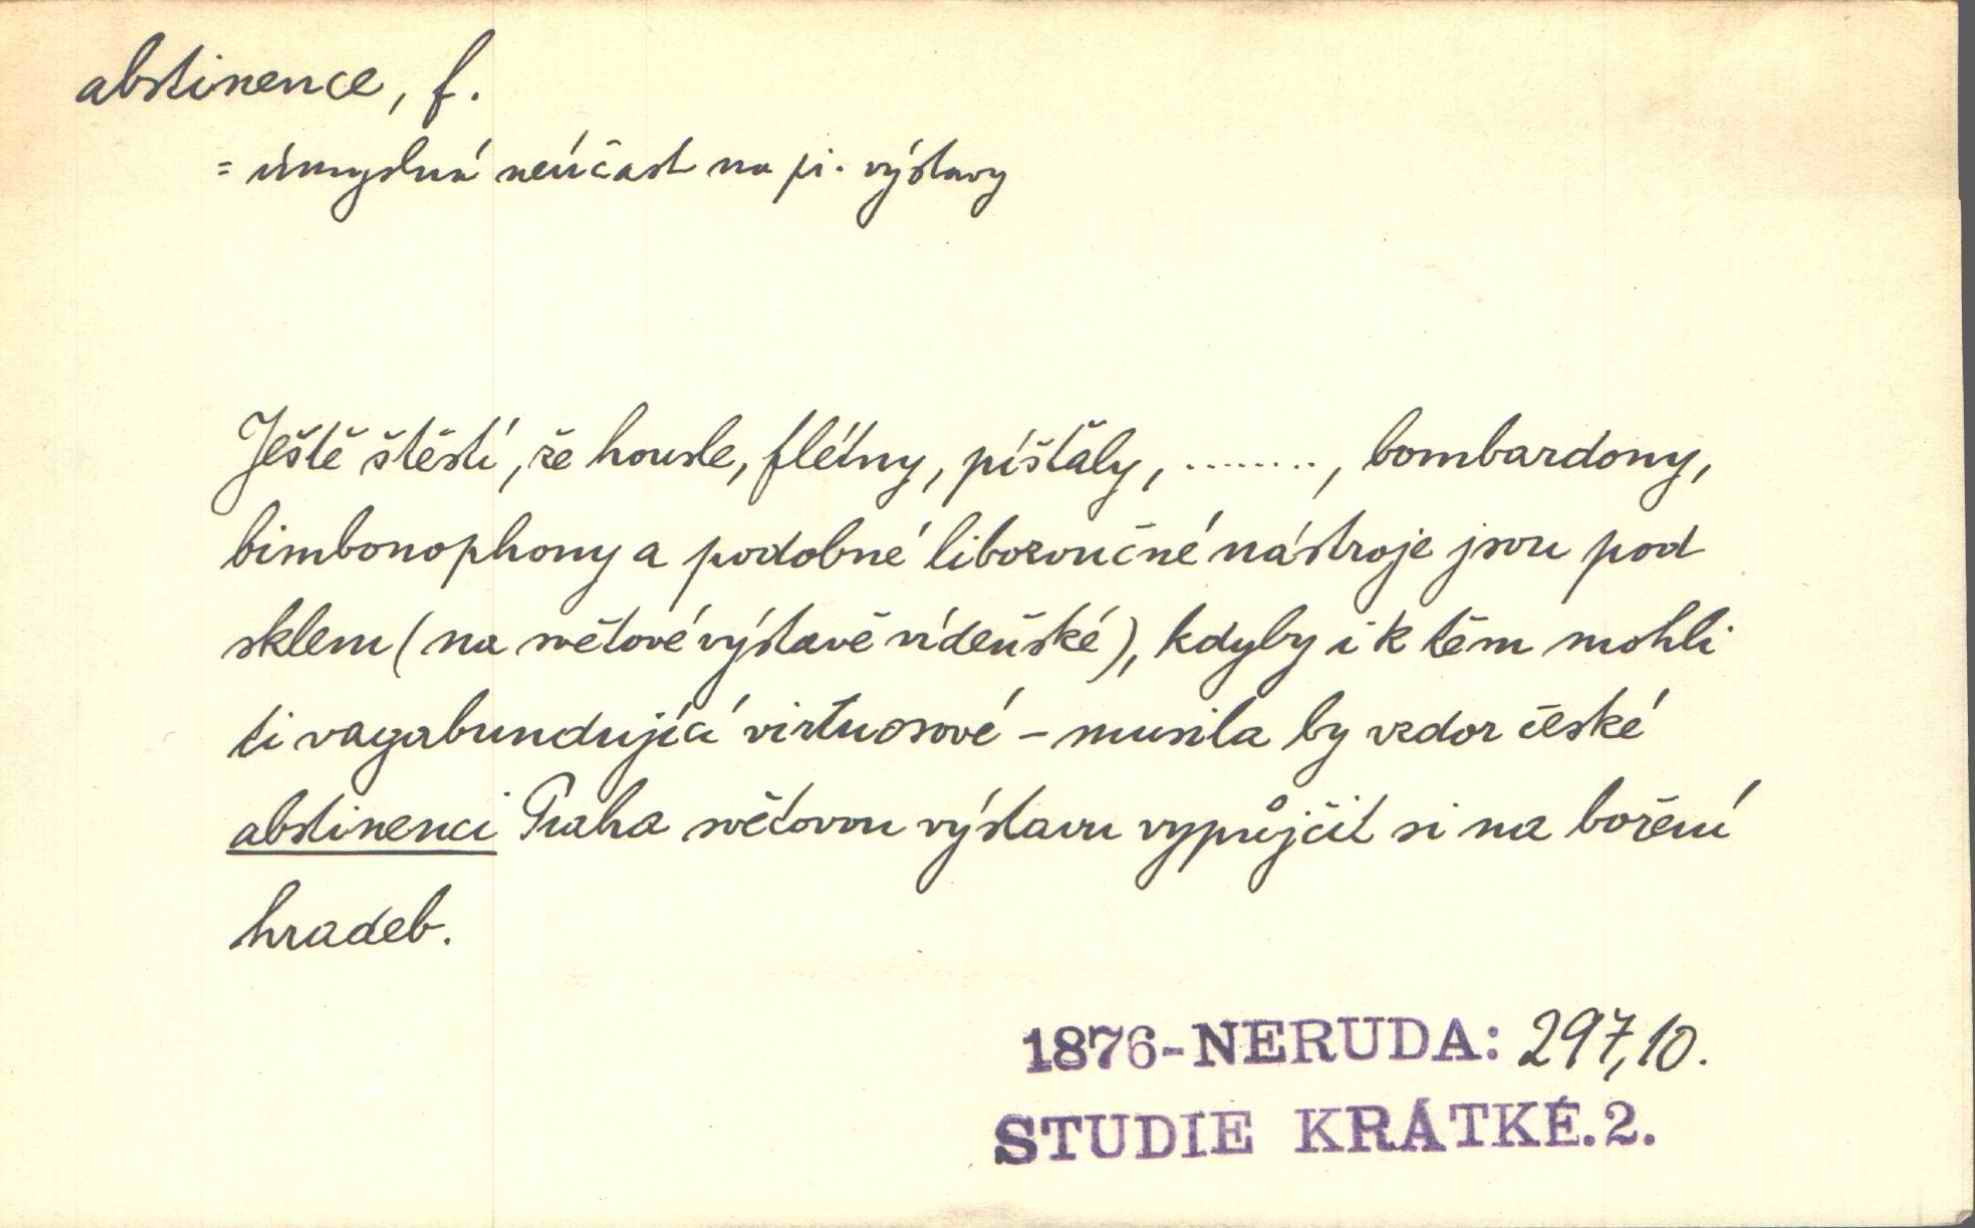 abstinence, f.
= úmyslná neúčast na př. výstavy
Ještě štěstí, že housle, flétny, píšťaly, ........, bombardony,
bimbonophony a podobné libozvučné nástroje jsou pod
sklem (na světové výstavě vídeňské), kdyby i k těm mohli
ti vagabundující virtuosové – musila by vzdor české
abstinenci Praha světovou výstavu vypůjčit si na boření
hradeb.
1876-NERUDA: 297,10.
STUDIE KRÁTKÉ.2.